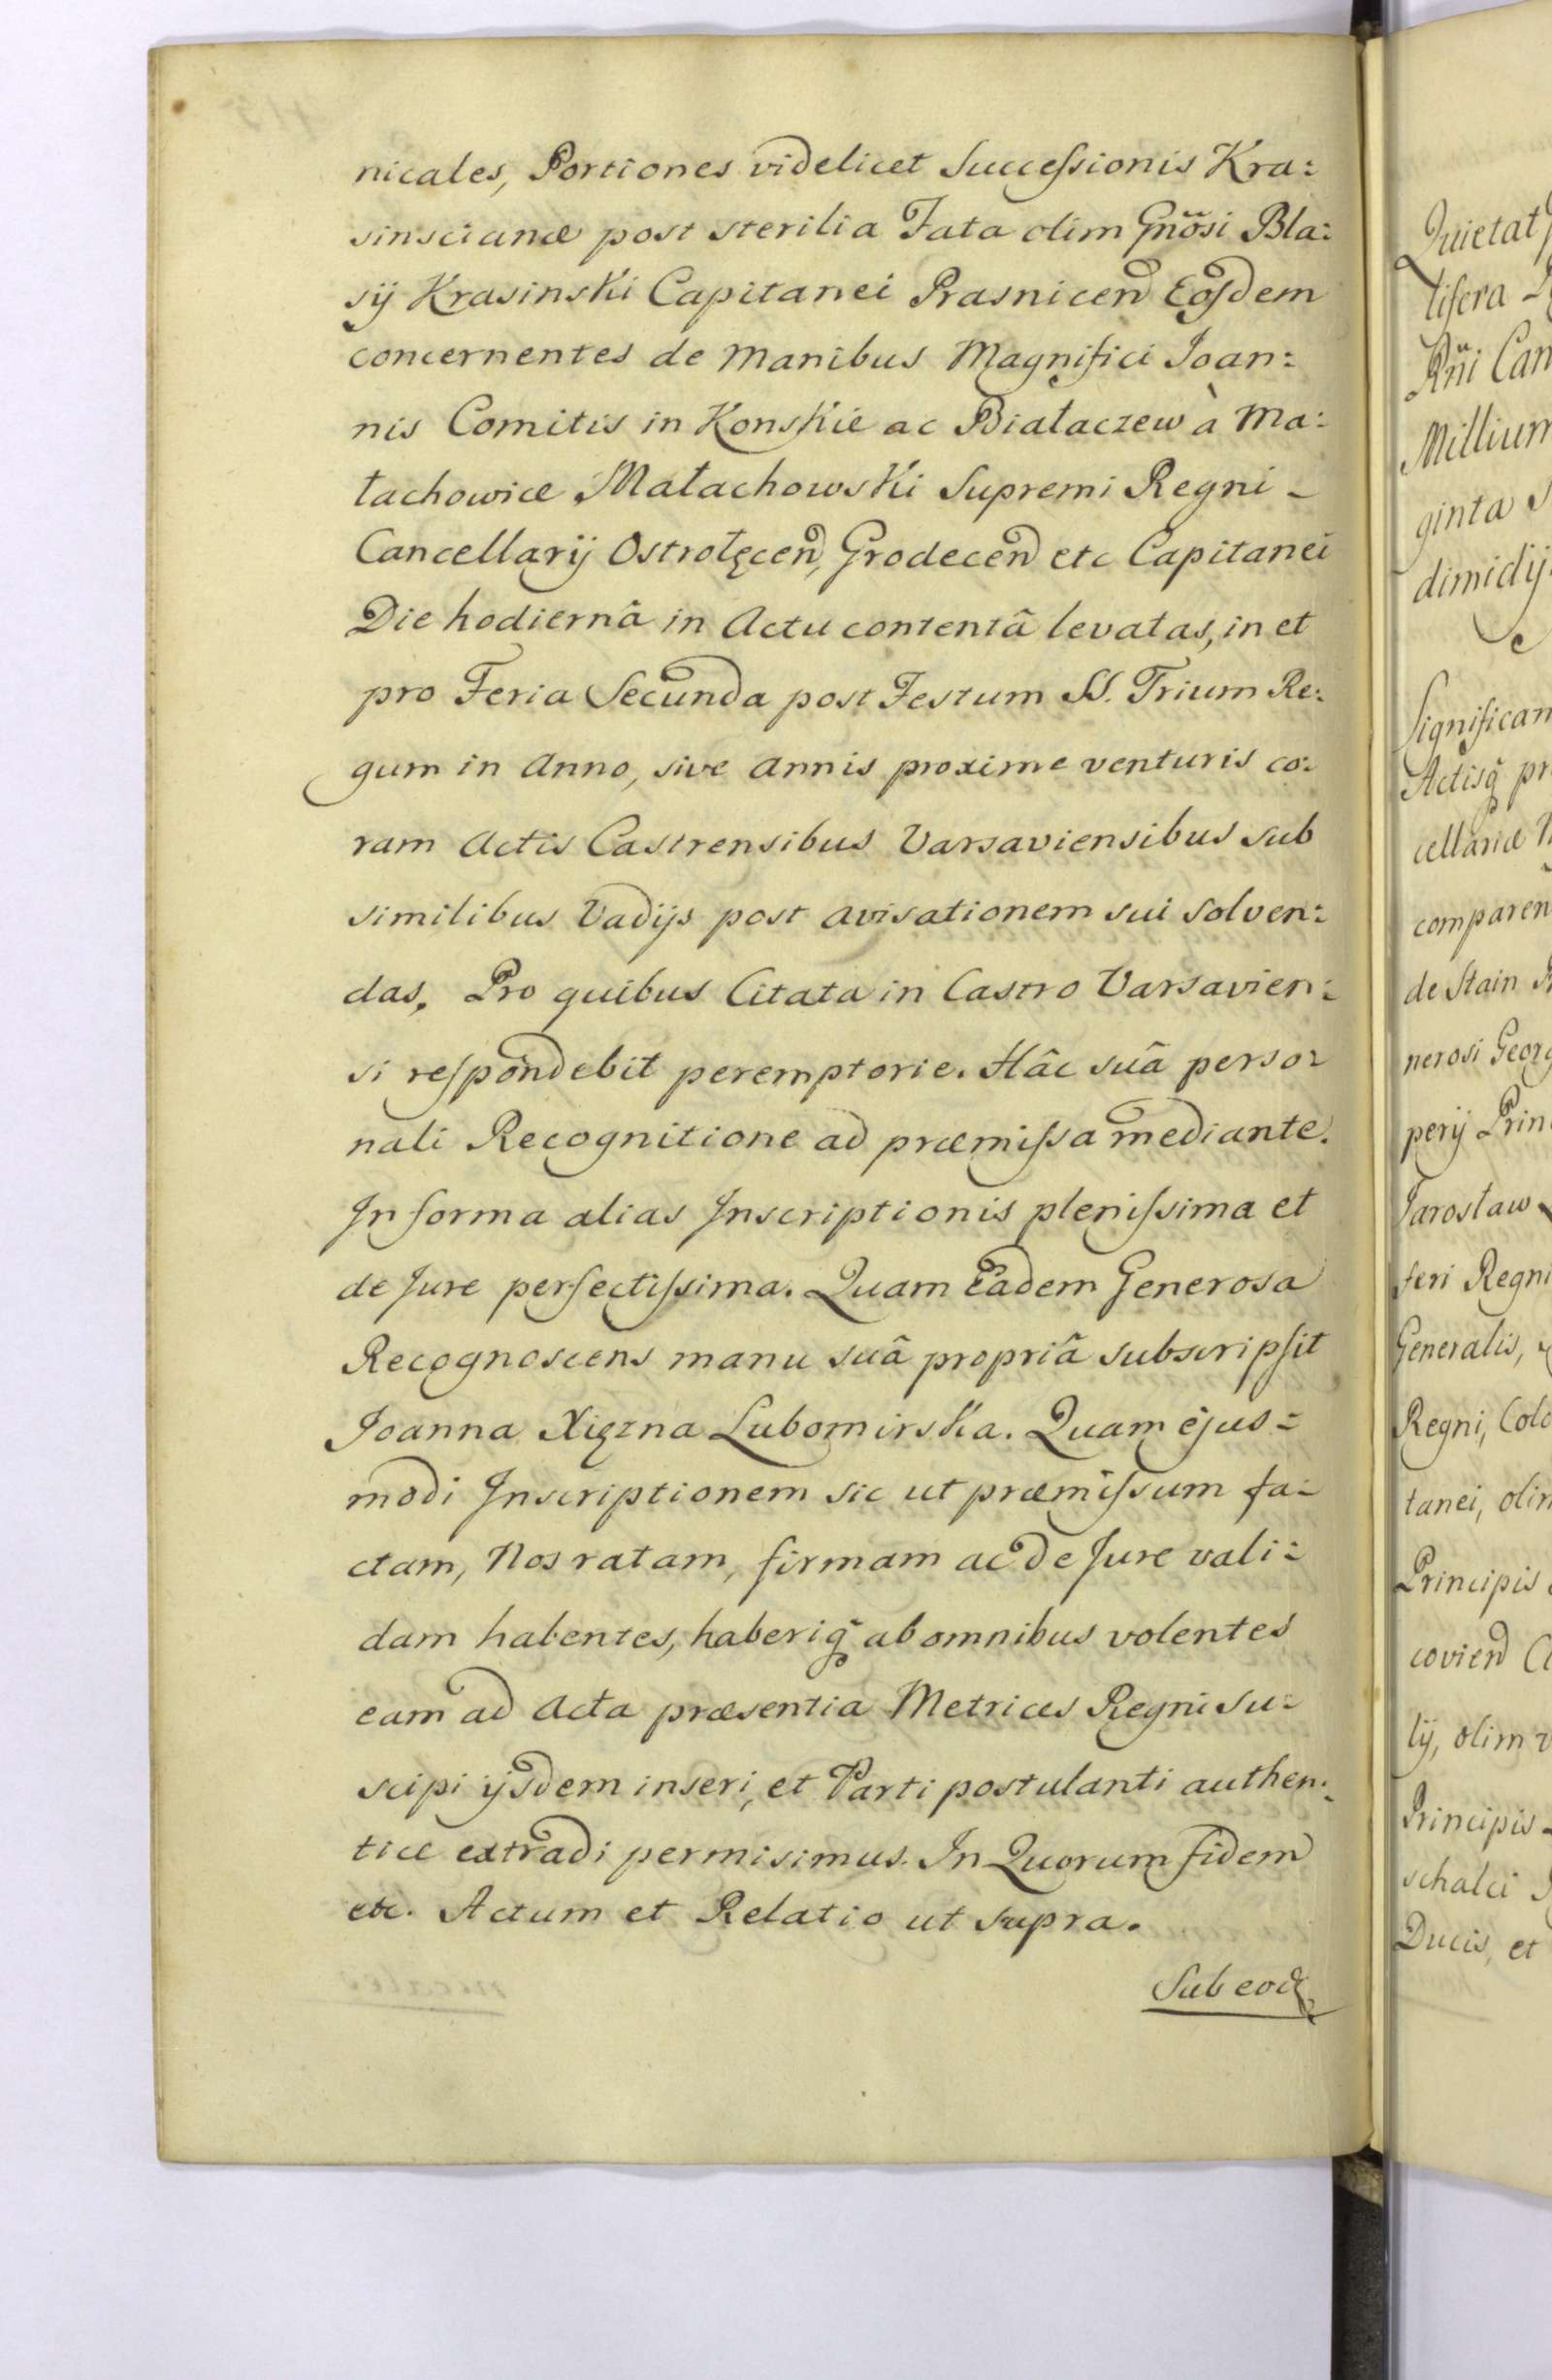 nicales, Portiones videlicet Successionis Kra:
sinscianæ post sterilia Fata olim Gnõsi Bla:
sij Krasinski Capitanei Prasnicen̄ Eosdem
concernentes de Manibus Magnifici Joan:
nis Comitis in Konskie ac Białaczew à Ma:
łachowice Małachowski Supremi Regni -
Cancellarij Ostrołęcen̄, Grodecen̄ etc Capitanei
Die hodiernâ in Actu contentâ levatas, in et
pro Feria Secunda post Festum SS. Trium Re:
gum in Anno, sive Annis proxime venturis co:
ram Actis Castrensibus Varsaviensibus sub
similibus Vadijs post avisationem sui solven:
das. Pro quibus Citata in Castro Varsavien:
si respondebit peremptorie. Hâc suâ perso:
nali Recognitione ad præmissa mediante.
In forma alias Inscriptionis plenissima et
de Jure perfectissima. Quam Eadem Generosa
Recognoscens manu suâ propriâ subscripsit
Joanna Xięzna Lubomirska. Quam ejus:
modi Inscriptionem sic ut præmissum fa:
ctam, Nos ratam, firmam ac de Jure vali:
dam habentes, haberiq̃ ab omnibus volentes
eam ad Acta præsentia Metrices Regni su:
scipi ijsdem inseri, et Parti postulanti authen:
tice extradi permisimus. In Quorum fidem
etc. Actum et Relatio ut supra.
Sub eod
Quietat
tifera
Rñi Can
Millium
ginta S
dimidij
Significam
Actisq̃ pr
cellariæ
comparen
de Stain
nerosi Georg
perij Prin
Jarosław
feri Regni
Generalis,
Regni, Colo
tanei, olim
Principis
covien̄ Ca
lij, olim v
Principis
schalci
Ducis, et